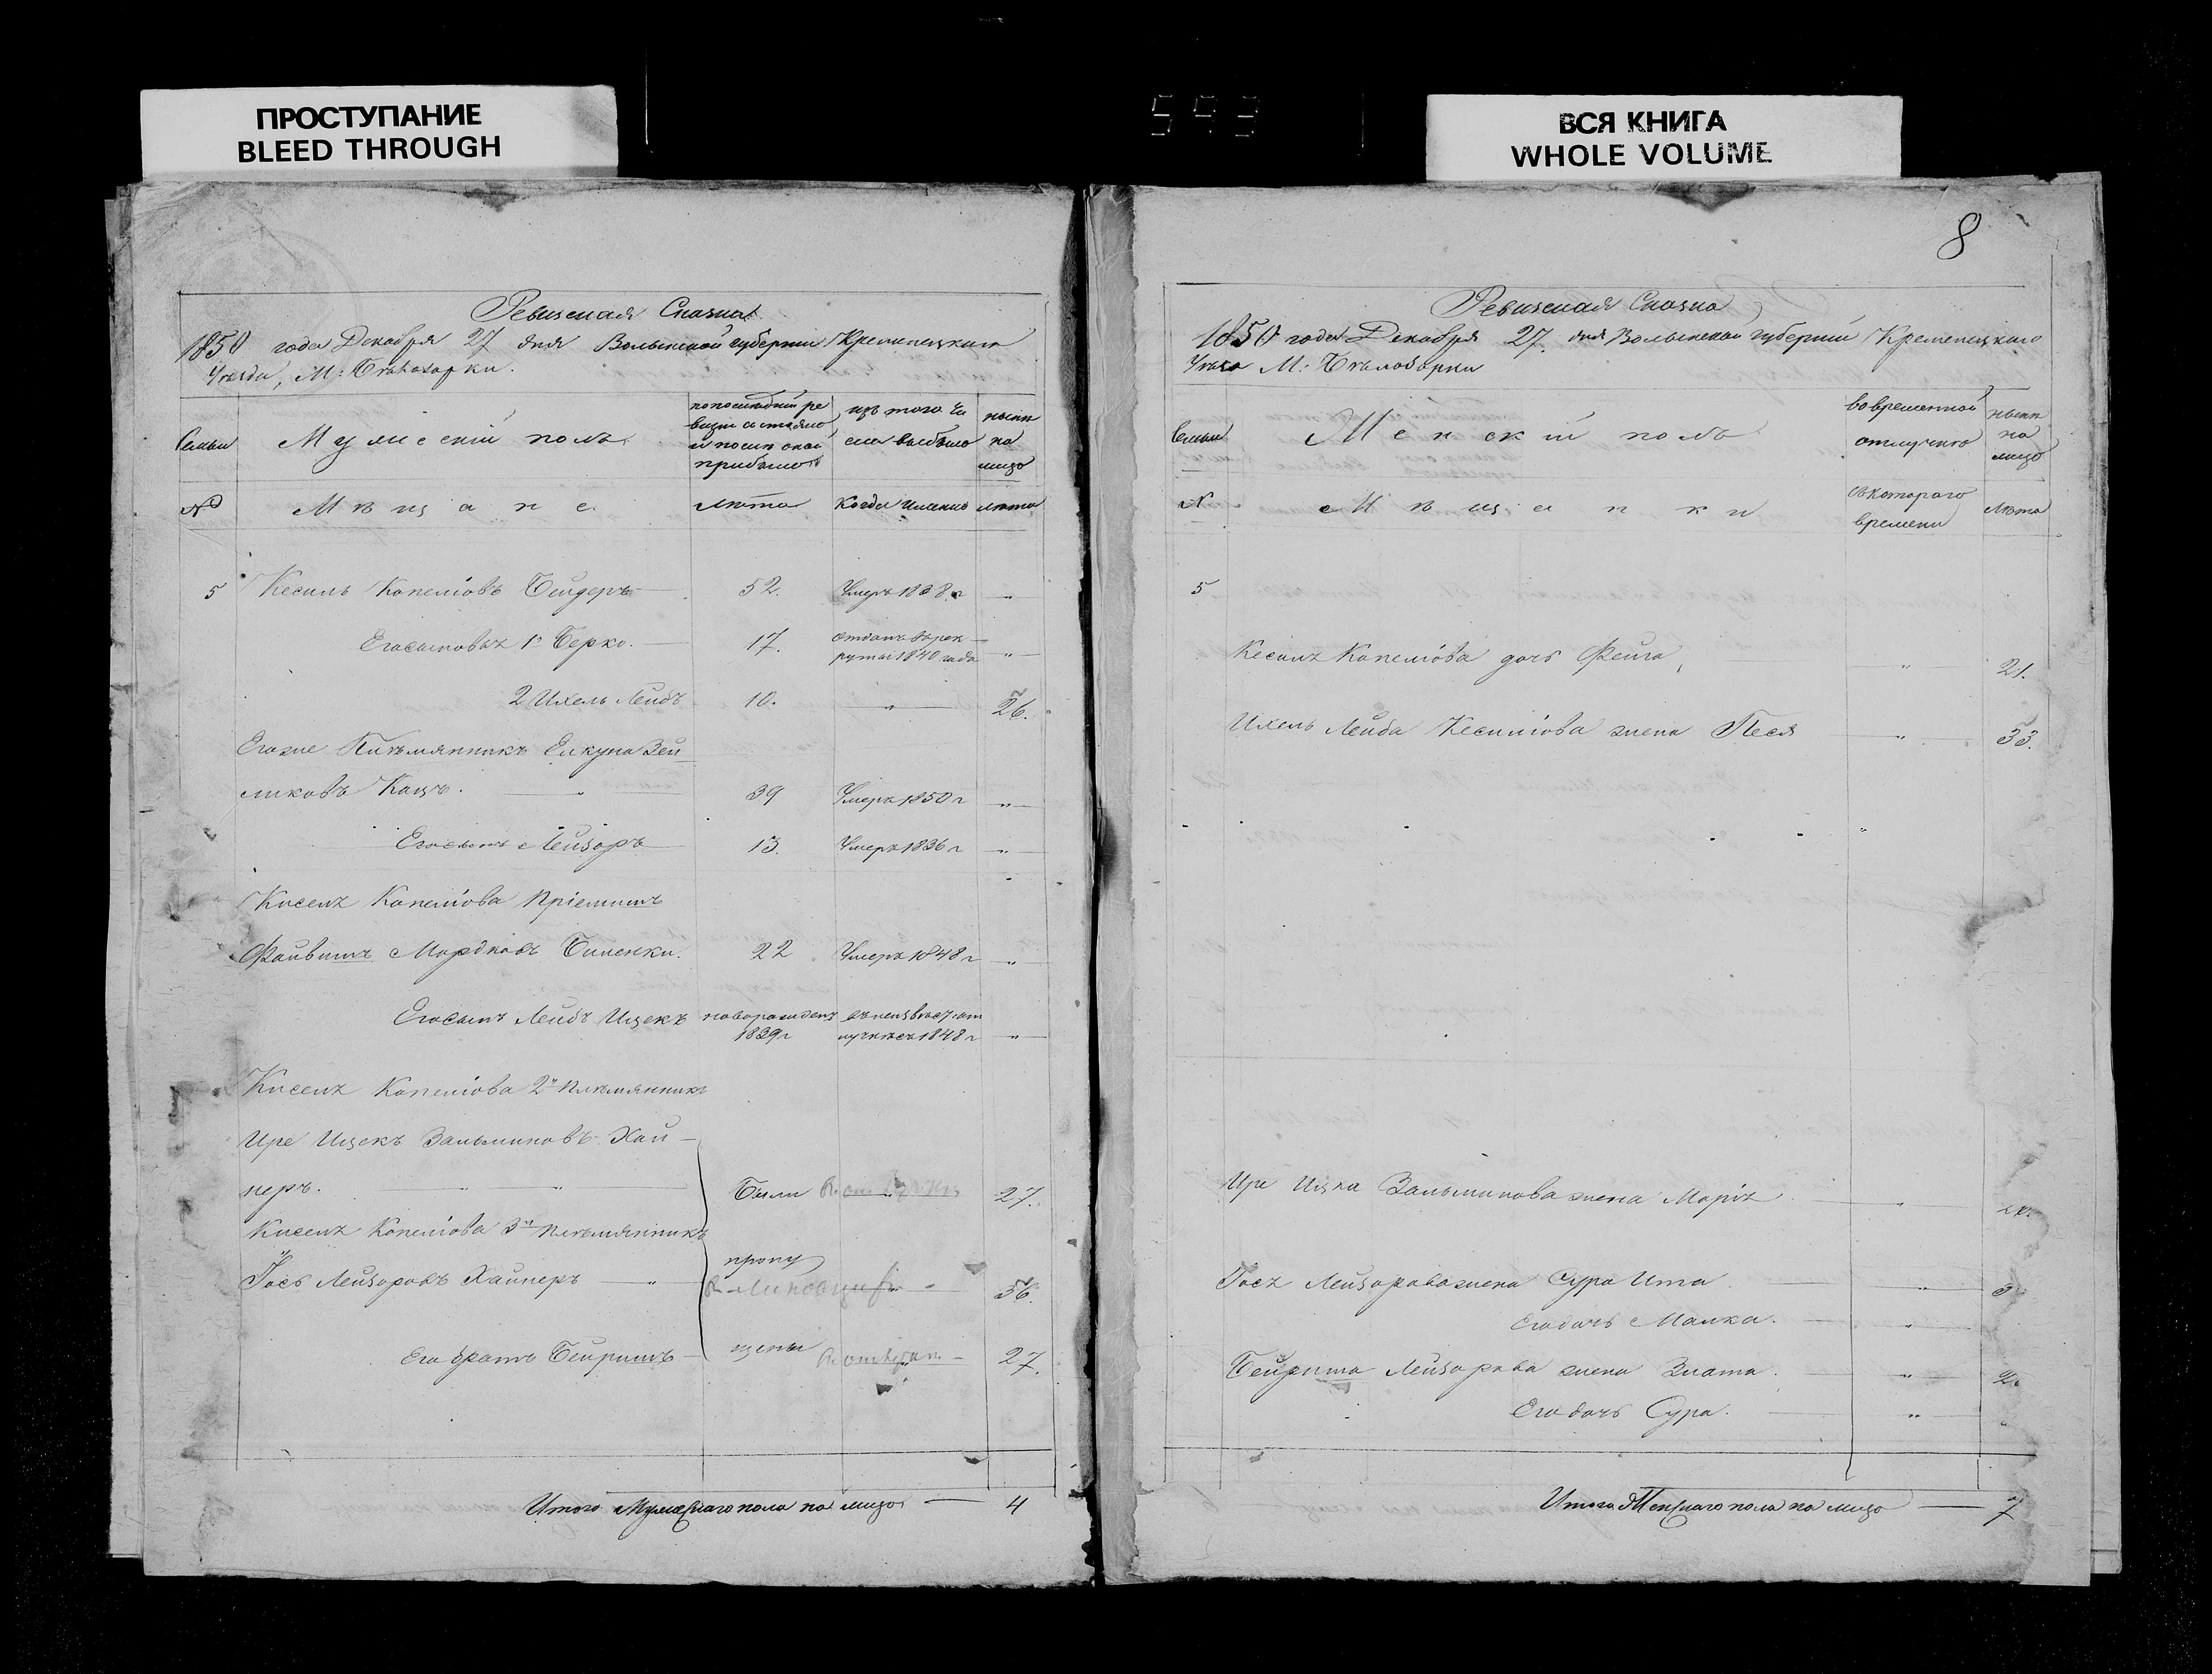 ПРОСТУПАНИЕ
BLEED THROUGH
593
ВСЯ КНИГА
WHOLE VOLUME
Ревизская Сказка
1850 года Декабря 27 дня Волынской губернии Кременецкаго
Уезда, М: Белозорки.
Семьи
Мужескій полъ.
по последней ре
визіи состояло
и после оной
прибыло
изъ того чи
сла выбыло
ныне
на
лицо
№
Мещане.
лета
Когда именно
лета
5 Кесиль Копеліовъ Бендеръ 52. Умеръ 1838 г "
Его сыновья 1й Берко. 17. отданъ въ рек
руты 1840 года "
2 Ихель Лейбъ 10. " 26.
Его же Племянникъ Елкуна Зей
ликовъ Кацъ. " 39 Умеръ 1850 г "
Его сынъ Лейзоръ 13. Умеръ 1836 г "
Киселя Копеліова Пріемышъ
Файвишъ Мордковъ Биленки. 22 Умеръ 1848 г "
Его сынъ Лейбъ Ицекъ новорожденъ въ неизвест: от
1839 г лучке съ 1848 г "
Киселя Копеліова 2й племянникъ
Ире Ицекъ Зальмановъ Хай
перъ. " " Были " 27.
Киселя Копеліова 3й племянникъ
Іось Лейзоровъ Хайперъ " пропу " 56.
Его братъ Бейришъ щены " 27.
Итого Мужескаго пола на лицо 4
8
Ревизская Сказка
1850 года Декабря 27. дня Волынской губерніи Кременецкаго
Уезда М: Белозорки
Семьи
Женскій полъ
во временной
отлучке
ныне
на
лицо
№
Мещанки
съ котораго
времени
Лета
5
Кесиля Копеліова дочь Фейга, " 21.
Ихель Лейба Кесиліова жена Песя " 33.
Ире Ицка Зальманова жена Марія "
Іося Лейзорова жена Сура Ита "
Его дочь Малка. "
Бейриша Лейзорова жена Злата. "
Его дочь Сура. "
Итого Женскаго пола на лицо 7